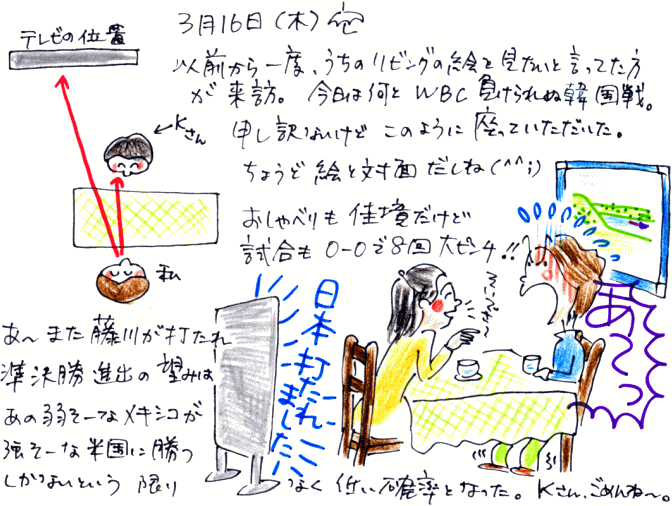 3月16日(木)
テレビの位置
以前から一度、うちのリビングの絵を見たいと言ってた方
が来訪。今日は何と WBC 負けられぬ韓国戦。
Kさん
申し訳ないけど このように 座っていただいた。
ちょうど 絵と対面 だしね(^^;)
おしゃべりも 佳境だけど
試合も 0-0で8回 大ピンチ!!
私
日本打たれーー
ましたい
あ〜っ
あ〜 また 藤川が 打たれ
準決勝 進出の 望みは
あの 弱そーな メキシコが
強そーな 米国に 勝つ
しかないという 限り
なく 低い 確率となった。 Kさん、ごめんね〜。